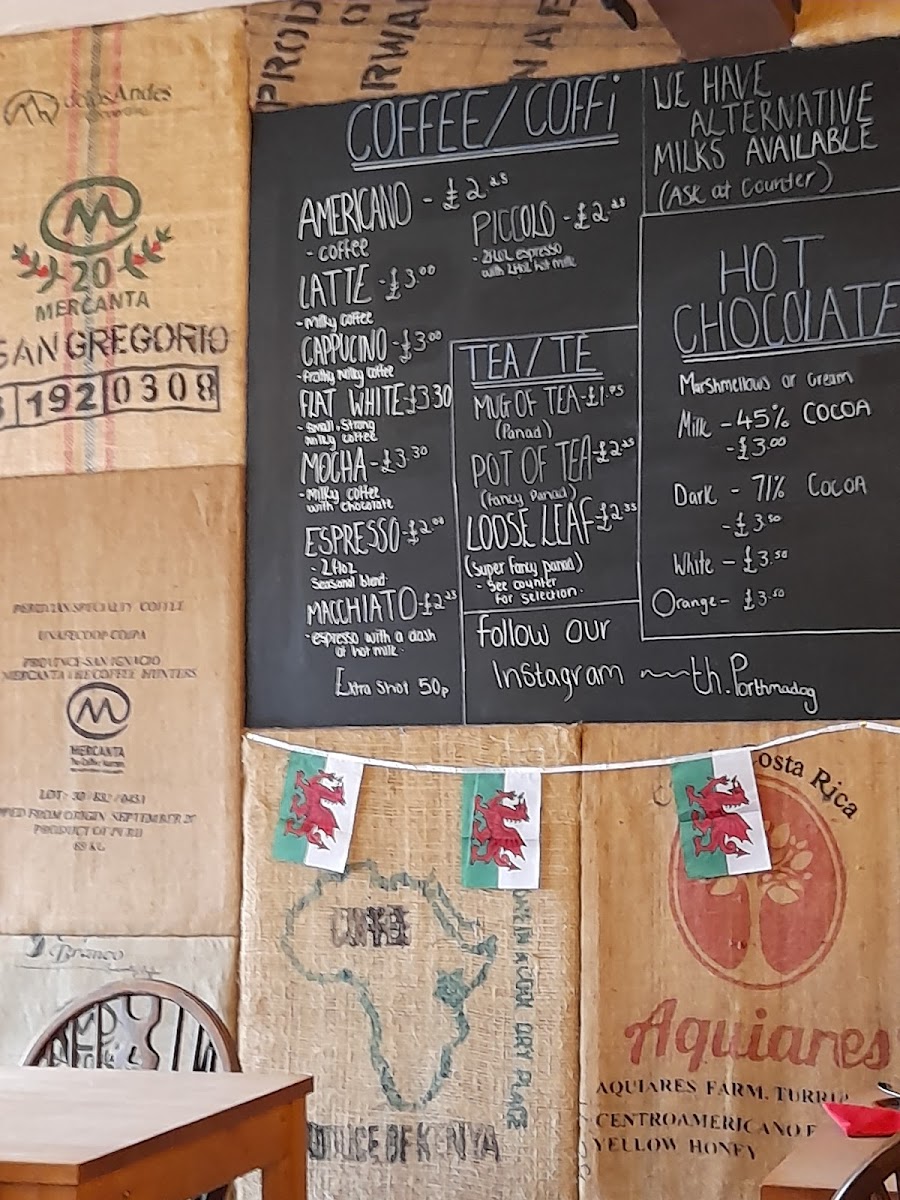 PROD
RWA
NAE
delosAndes
M
20
MERCANTA
SAN GREGORIO
192 0308
PERUVIAN SPECIALTY COFFEE
UNAFECOOP COIPA
PROVINCE-SAN IGNACIO
MERCANTA THE COFFEE HUNTERS
M
MERCANTA
The Coffee Hunters
PRODUCT OF PERU
69 KG
COFFEE / COFFI
AMERICANO - £2.25
- coffee
LATTE - £3.00
- Milky coffee
CAPPUCINO - £3.00
- Frothy Milky coffee
FLAT WHITE - £3.30
- Small, Strong
Milky coffee
MOCHA - £3.30
- Milky coffee
with chocolate
ESPRESSO - £2.00
- 2floz
Seasonal blend.
MACCHIATO - £2.25
- espresso with a dash
of hot milk.
Extra Shot 50p
PICCOLO - £2.25
- 2floz espresso
with 2floz hot milk
TEA / TE
MUG OF TEA - £1.95
(Panad)
POT OF TEA - £2.25
(Fancy Panad)
LOOSE LEAF - £2.35
(Super Fancy panad)
- See counter
For selection.
Follow our
Instagram ~ th.Porthmadog
WE HAVE
ALTERNATIVE
MILKS AVAILABLE
(Ask at Counter)
HOT
CHOCOLATE
Marshmellows or Cream
Milk - 45% COCOA
- £3.00
Dark - 71% COCOA
- £3.50
White - £3.50
Orange - £3.50
COFFEE
DRY PLACE
KENYA
osta Rica
Aquiares
AQUIARES FARM, TURRI
CENTROAMERICANO F
YELLOW HONEY